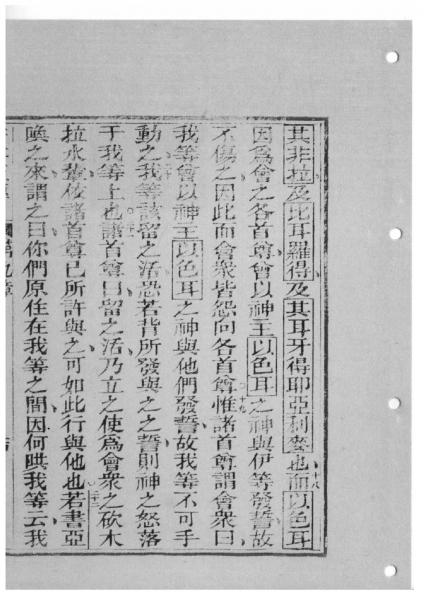 其非拉及比耳羅得及其耳牙得耶亞利麥也而以色耳
因為會之各首尊曾以神主以色耳之神與伊等發誓故
不傷之因此而會眾皆怨向各首尊惟諸首尊謂會眾曰
我等曾以神主以色耳之神與他們發誓故我等不可手
動之我等該留之活恐若背所發與之之誓則神之怒落
于我等上也諸首尊曰留之活乃立之使為會眾之砍木
拉水輩依諸首尊已所許與之可如此行與他也若書亞
喚之來謂之曰你們原住在我等之間因何哄我等云我
第九章
十八
十九
二十
二十一
二十二